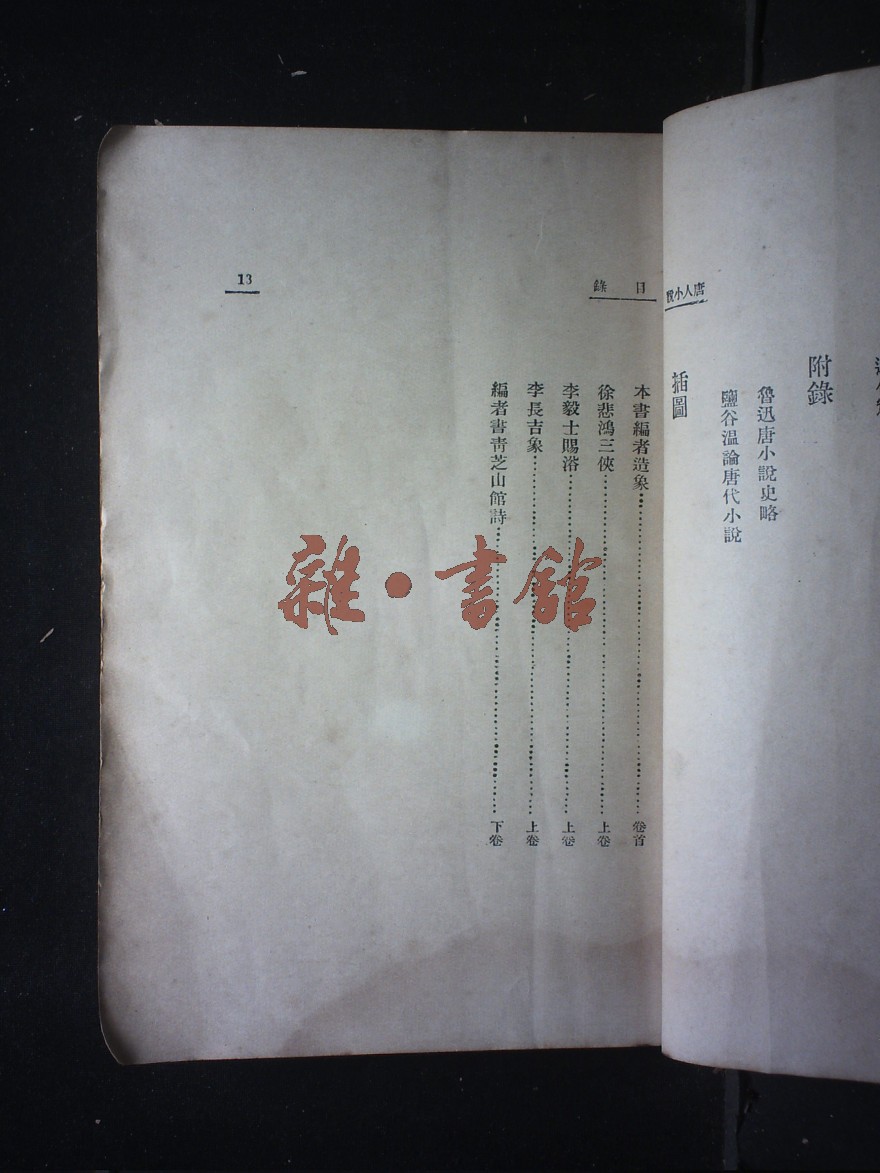 唐人小說
附錄
魯迅唐小說史略
鹽谷温論唐代小說
插圖
目錄
本書編者造象 卷首
徐悲鴻三俠 上卷
李毅士賜浴 上卷
李長吉象 上卷
編者書靑芝山館詩 下卷
13
雜·書館